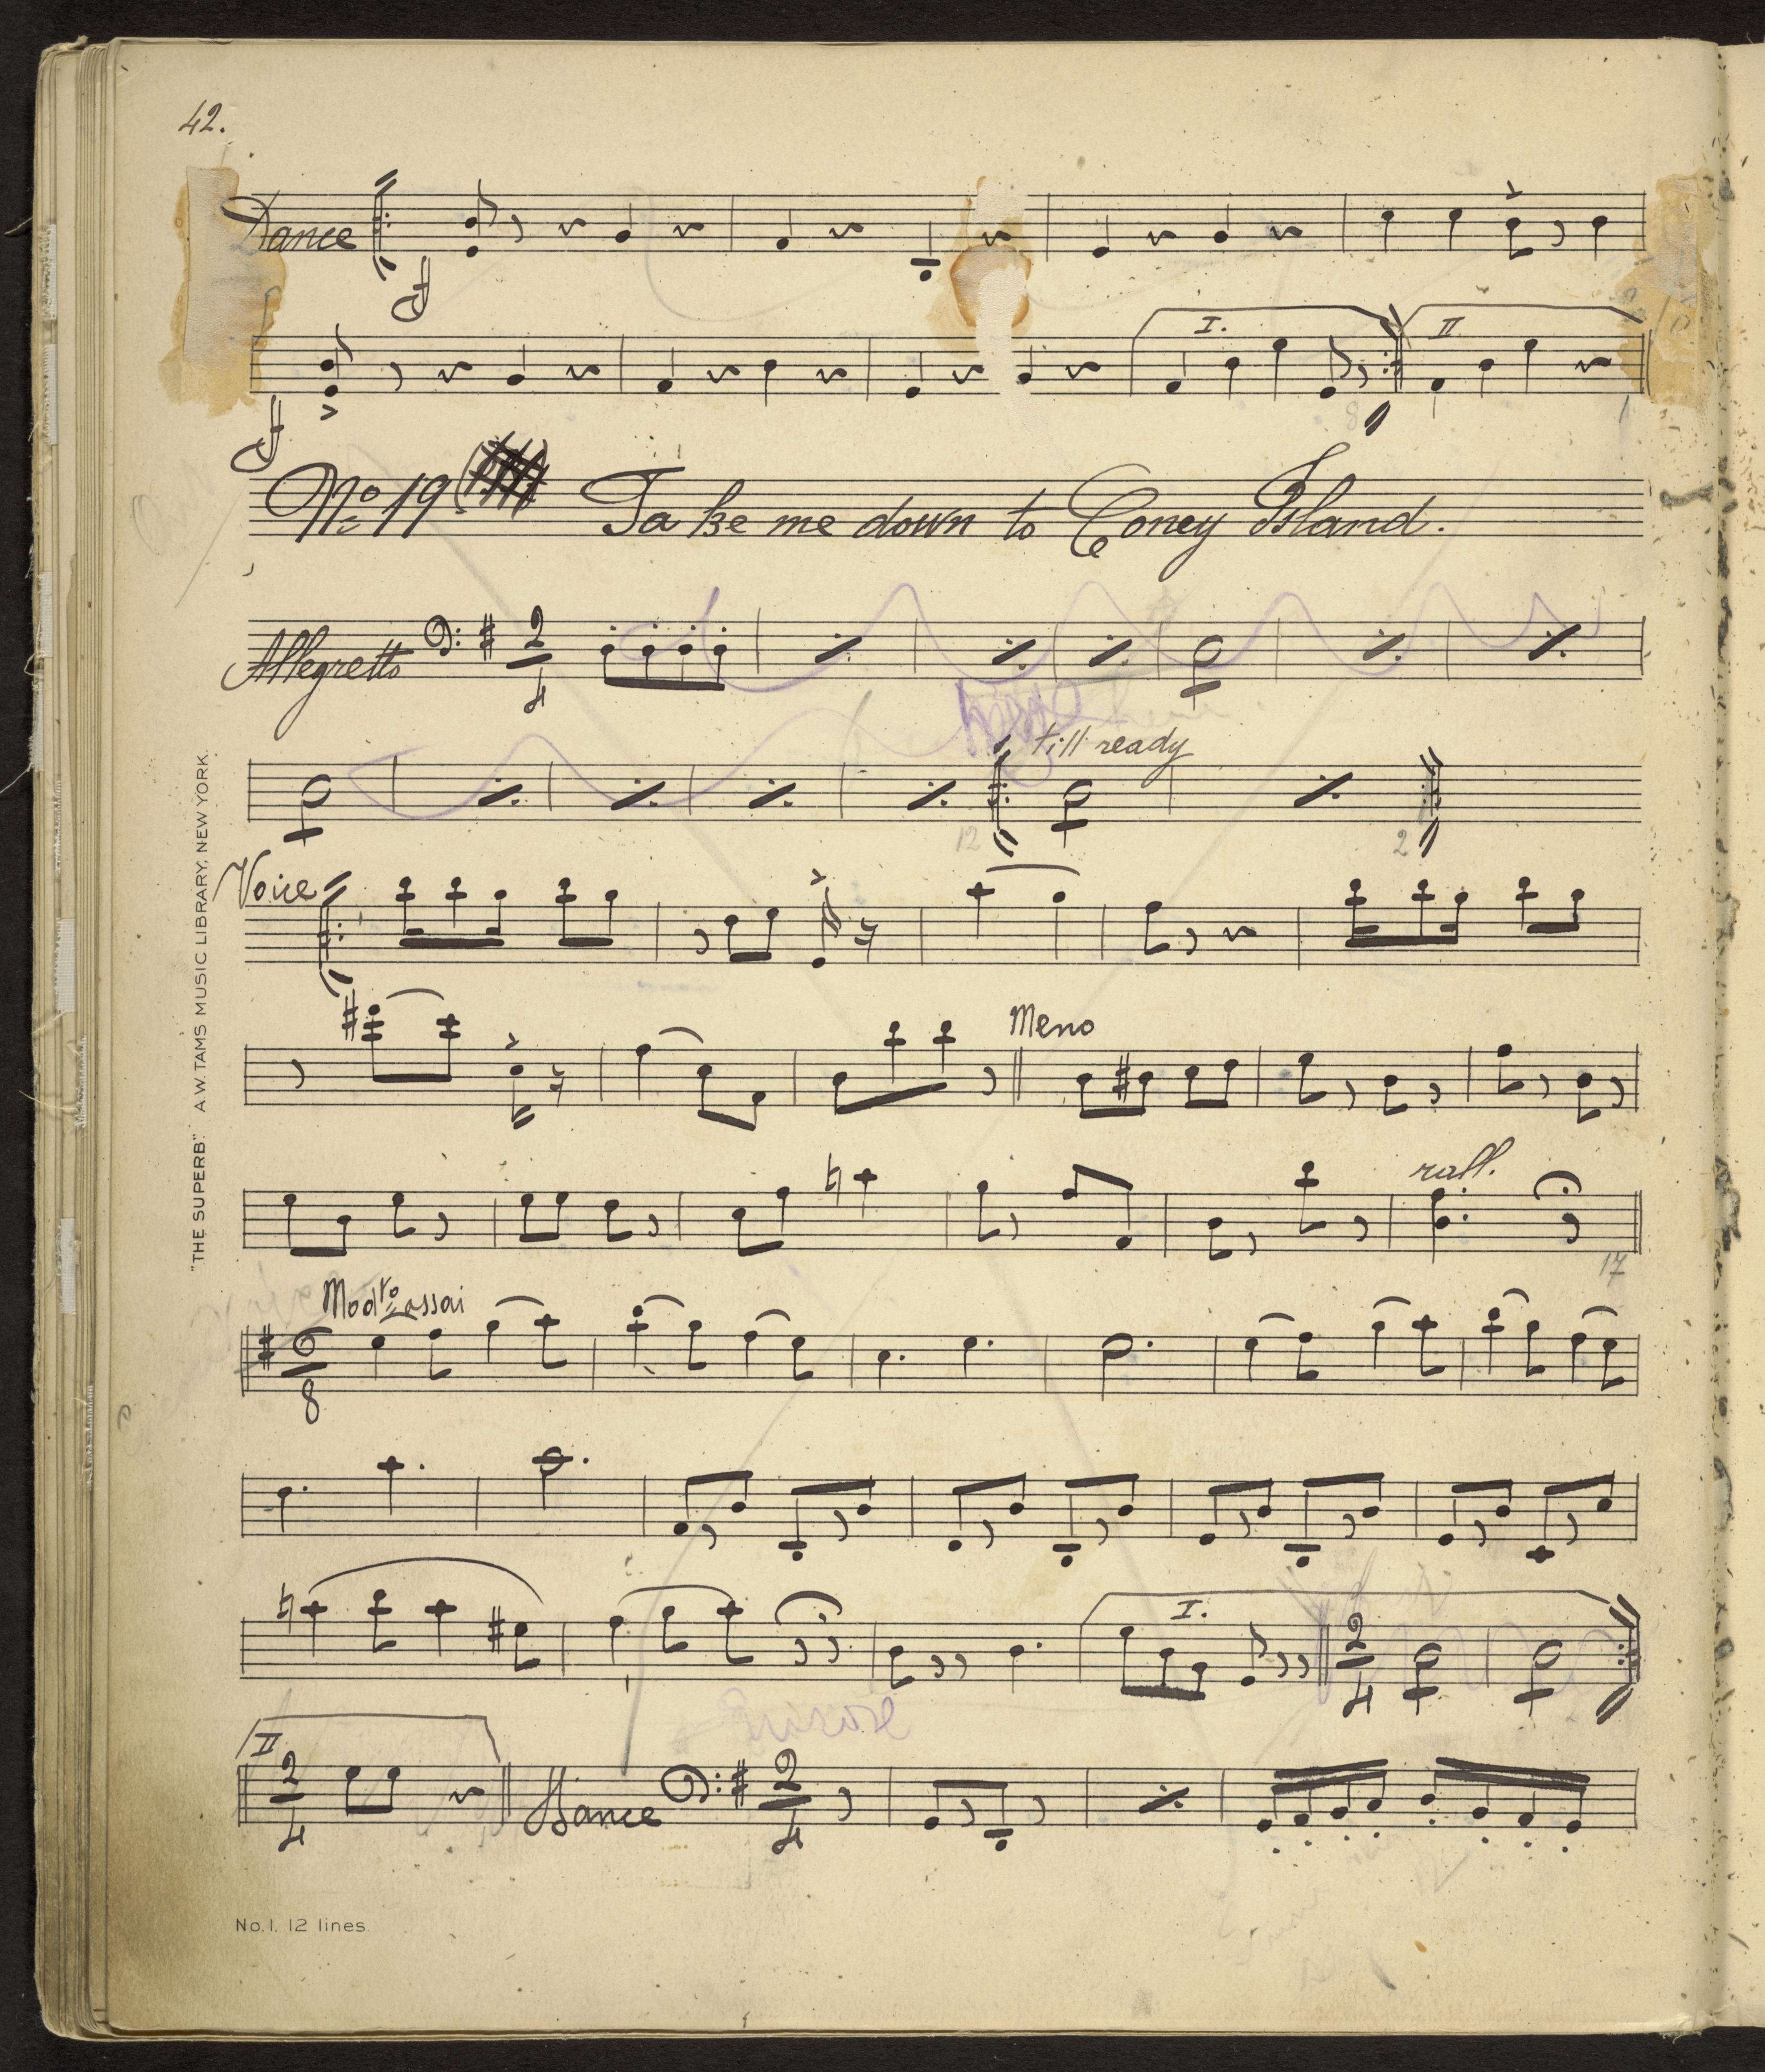 42.
Dance
f
I.
II
f
8
1
1
No 19
Take me down to Coney Island.
Allegretto
2
4
till ready
12
2
Voice
Meno
rall.
17
Modto assai
6
8
I.
2
4
II
2
4
Dance
2
4
"THE SUPERB". A.W. TAMS MUSIC LIBRARY, NEW YORK.
No. 1. 12 lines